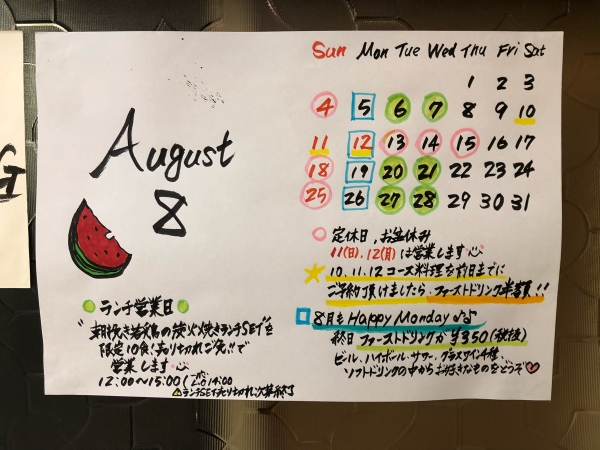 G
August
8
Sun Mon Tue Wed Thu Fri Sat
1 2 3
4 5 6 7 8 9 10
11 12 13 14 15 16 17
18 19 20 21 22 23 24
25 26 27 28 29 30 31
定休日、お盆休み
11(日)、12(月)は営業します
10、11、12 コース料理を前日までに
ご予約頂けましたら、ファーストドリンク半額!!
8月も Happy Monday♪
終日 ファーストドリンクが ¥350(税抜)
ビール、ハイボール、サワー、グラスワイン4種、
ソフトドリンクの中からお好きなものをどうぞ
ランチ営業日
"朝挽き若鶏の炭火焼きランチSET"を
限定10食!売り切れご免!!で
営業します
12:00〜15:00 (L.O 14:00
⚠ランチSET売り切れ次第終了